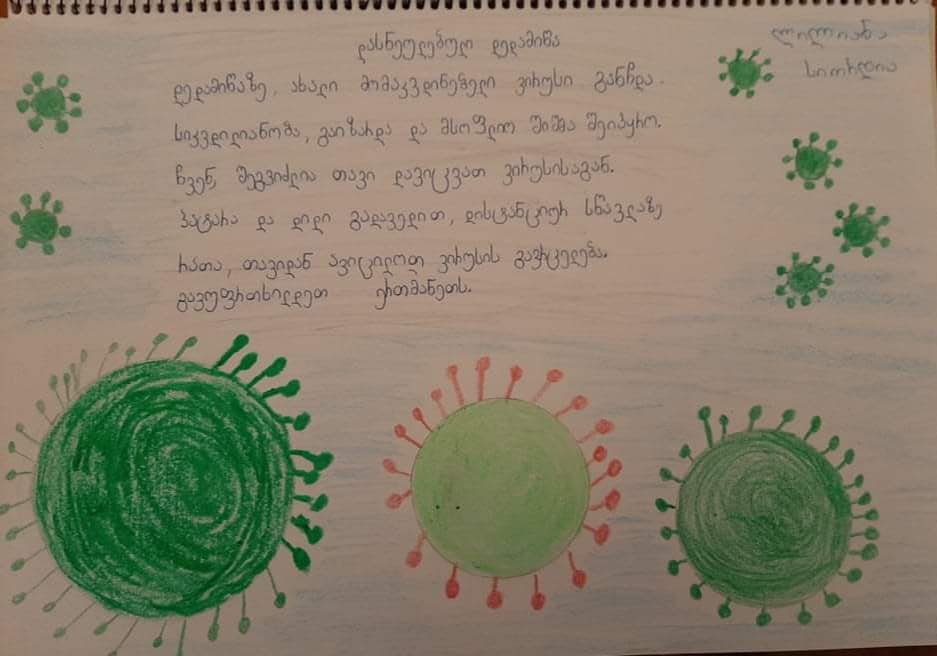 დასნეულებული დედამიწა
ლილიანა
სიორდია
დედამიწაზე, ახალი მომაკვდინებელი ვირუსი გაჩნდა.
სიკვდილიანობა, გაიზარდა და მსოფლიო შიშმა შეიპყრო.
ჩვენ, შეგვიძლია თავი დავიცვათ ვირუსისაგან.
პატარა და დიდი გადავედით, დისტანციურ სწავლაზე
რათა, თავიდან ავიცილოთ ვირუსის გავრცელება.
გავუფრთხილდეთ ერთმანეთს.